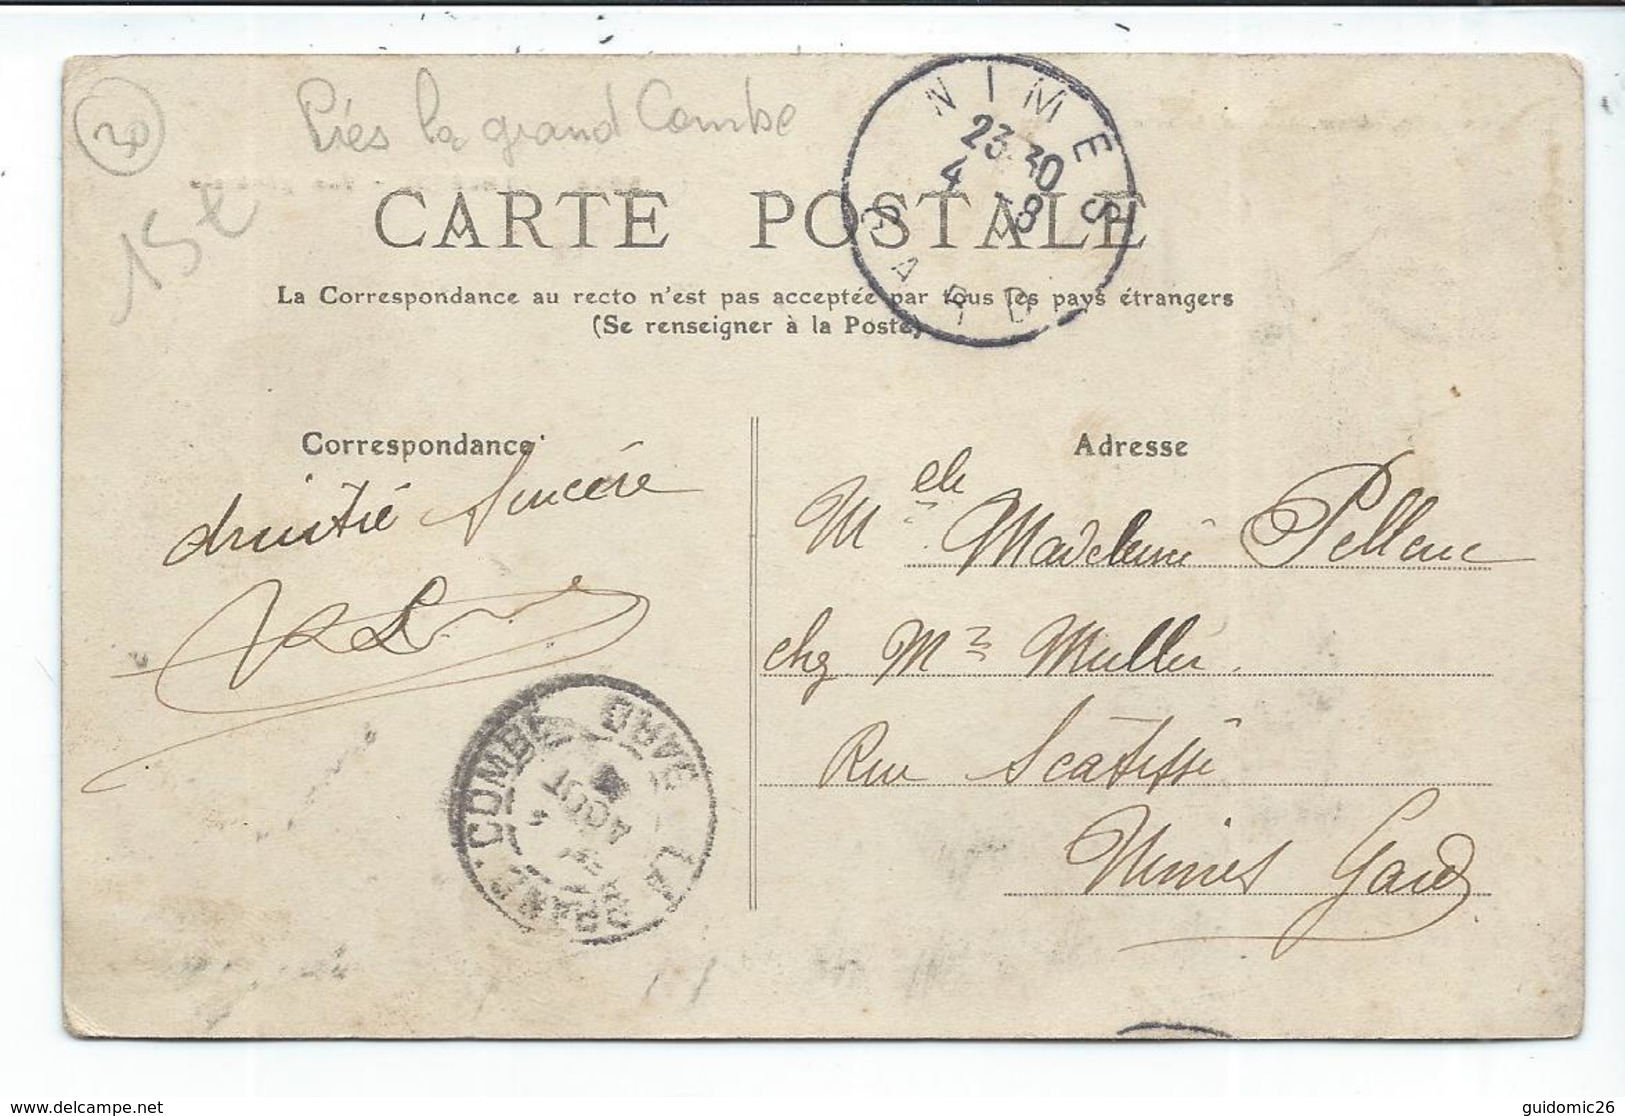 30
Près la grand Combe
15€
NIMES
23.30
4 -8
GARD
CARTE POSTALE
La Correspondance au recto n'est pas acceptée par tous les pays étrangers
(Se renseigner à la Poste)
Correspondance
Amitié Sincère
Adresse
Melle Madeleine Pellenc
chez Mr Muller.
Rue Scatisse
Nimes Gard
LA GRAND COMBE GARD
4 AOUT
www.delcampe.net
guidomic26